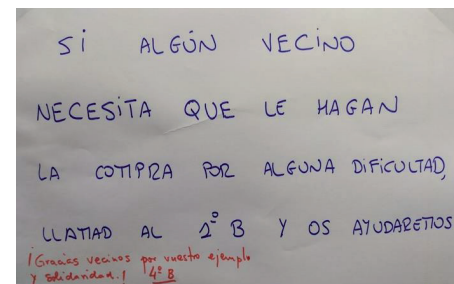 Si ALGÚN VECiNO
NECESiTA QUE LE HAGAN
LA COMPRA POR ALGUNA DiFiCULTAD,
LLAMAD AL 2º B Y OS AYUDAREMOS
¡Gracias vecinos por vuestro ejemplo
y solidaridad.! 4º B